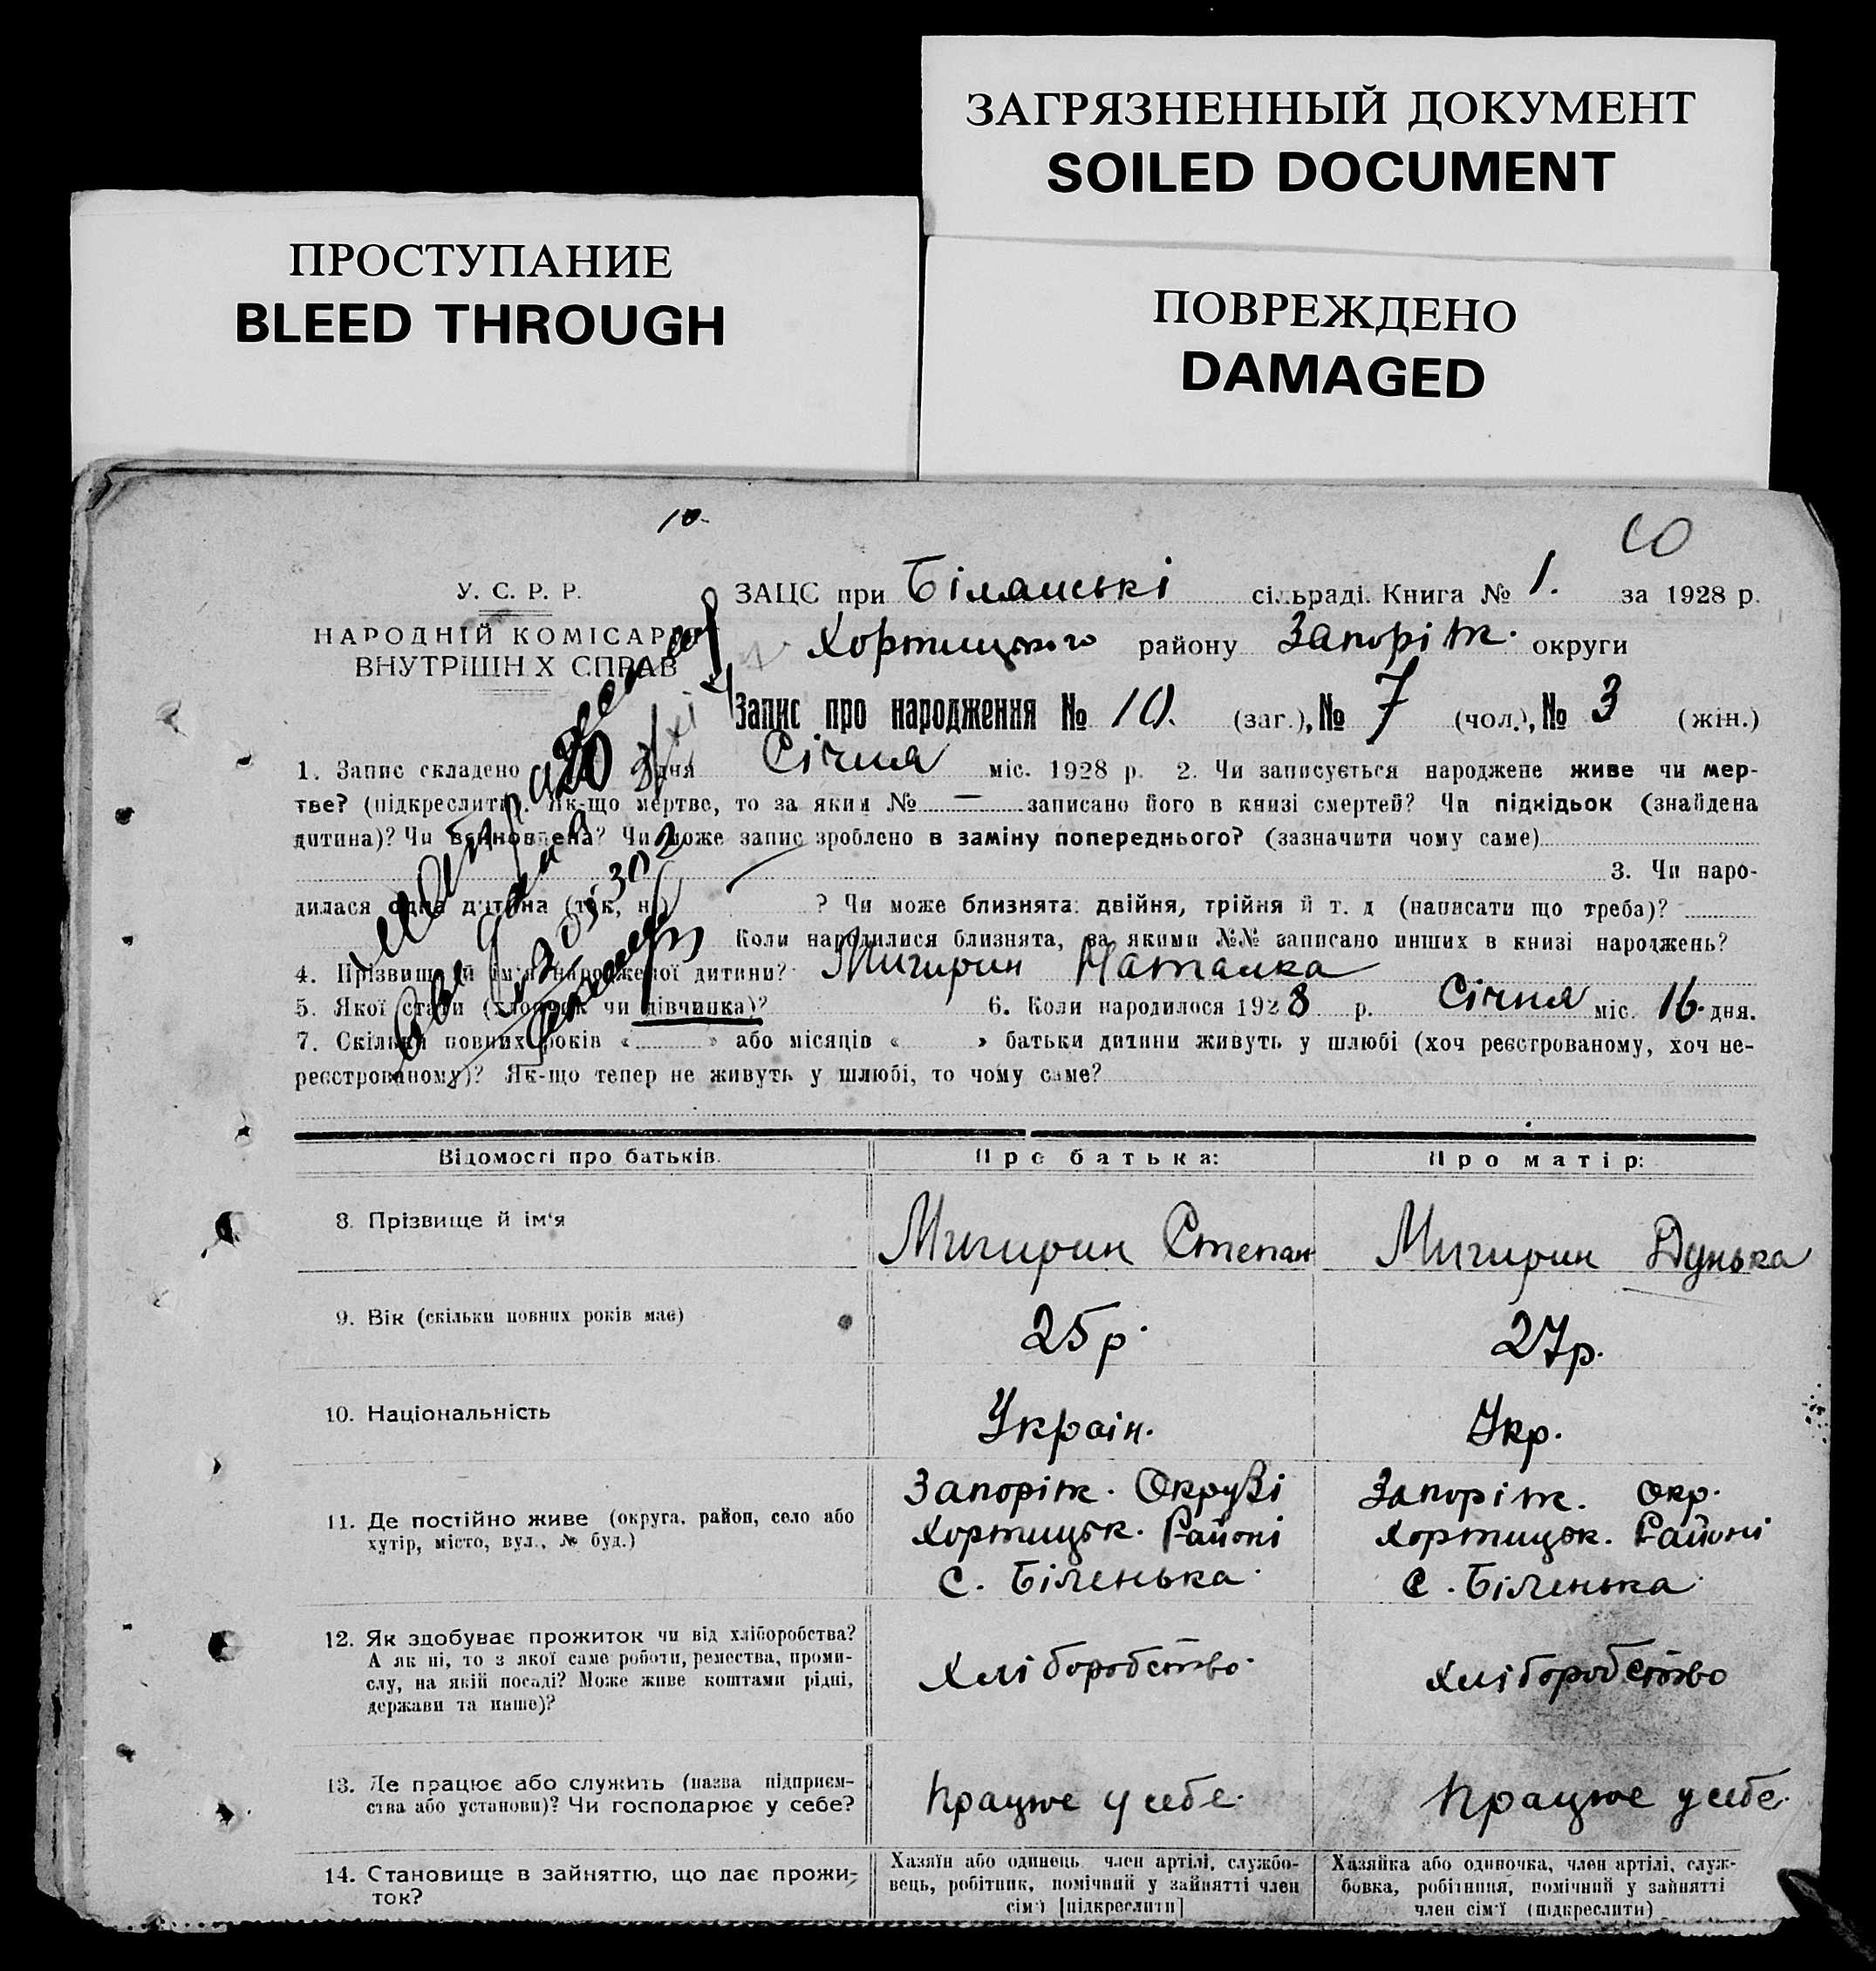 ЗАГРЯЗНЕННЫЙ ДОКУМЕНТ
SOILED DOCUMENT
ПРОСТУПАНИЕ
BLEED THROUGH
ПОВРЕЖДЕНО
DAMAGED
10.
10
У. С. Р. Р.
НАРОДНІЙ КОМІСАР
ВНУТРІШН Х СПРАВ
ЗАЦС при Біланські сільраді. Книга № 1. за 1928 р.
Хортицького району Запоріж. округи
Запис про народження № 10. (заг.), № 7 (чол.), № 3 (жін.)
1. Запис складено 20 дня Січня міс. 1928 р. 2. Чи записується народжене живе чи мер-
тве? (підкреслити). Як-що мертве, то за яким № — записано його в книзі смертей? Чи підкідьок (знайдена
дитина)? Чи Чи може запис зроблено в заміну попереднього? (зазначити чому саме)
3. Чи наро-
дилася одна дитина (так, ні) ? Чи може близнята: двійня, трійня й т. д (написати що треба)?
Коли народилися близнята, за якими №№ записано инших в книзі народжень?
4. Прізвище й ім'я народженої дитини? Мигирин Наталка
5. Якої стати (хлопчик чи дівчинка)? 6. Коли народилося 1928 р. Січня міс. 16. дня.
7. Скільки повних років « » або місяців « » батьки дитини живуть у шлюбі (хоч реєстрованому, хоч не-
реєстрованому)? Як-що тепер не живуть у шлюбі, то чому саме?
Відомості про батьків. Про батька: Про матір:
8. Прізвище й ім'я Мигирин Степан Мигирин Дунька
9. Вік (скільки повних років має) 25 р. 27 р.
10. Національність Україн. Укр.
11. Де постійно живе (округа, район, село або
хутір, місто, вул., № буд.)
Запоріж. Окрузі
Хортицьк. Районі
С. Біленька.
Запоріж. Окр.
Хортицьк. Районі
С. Біленька
12. Як здобуває прожиток чи від хліборобства?
А як ні, то з якої саме роботи, ремества, проми-
слу, на якій посаді? Може живе коштами рідні,
держави та инше)?
Хліборобство.
Хліборобство
13. Де працює або служить (назва підприєм-
ства або установи)? Чи господарює у себе?
Працює у себе.
Працює у себе.
14. Становище в зайняттю, що дає прожи-
ток?
Хазяїн або одинець член артілі, службо-
вець, робітник, помічний у зайнятті член
сім'ї [підкреслити]
Хазяйка або одиночка, член артілі, служ-
бовка, робітниця, помічний у зайнятті
член сім'ї (підкреслити)